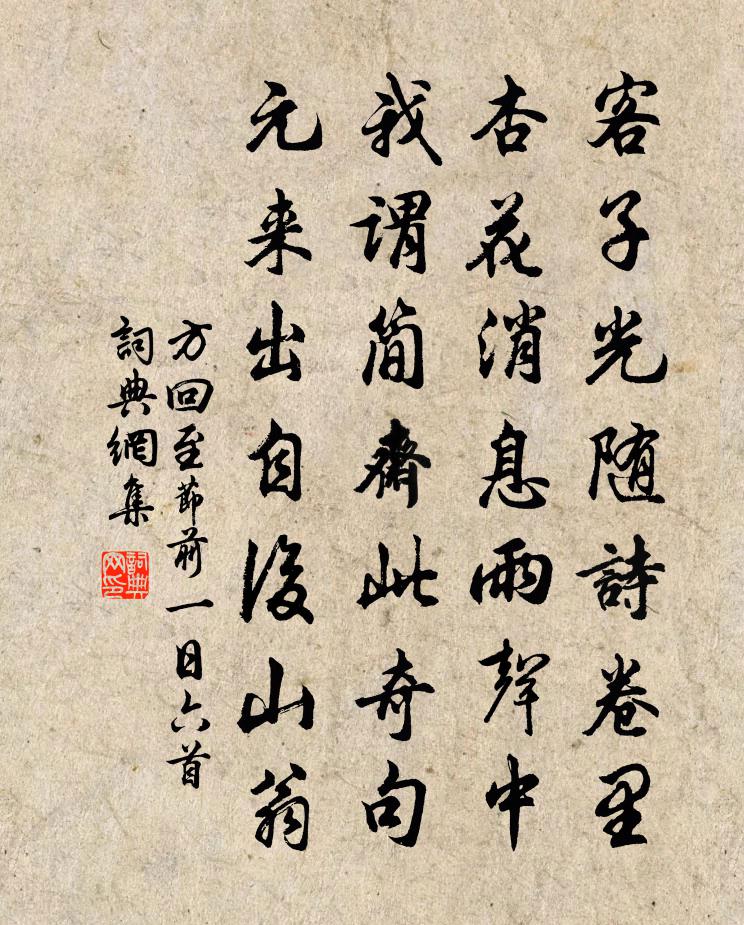 客子光随詩卷里
杏花消息雨聲中
我谓简齋此奇句
元来出自後山翁
方回至節前一日六首
詞典網集
詞典網印